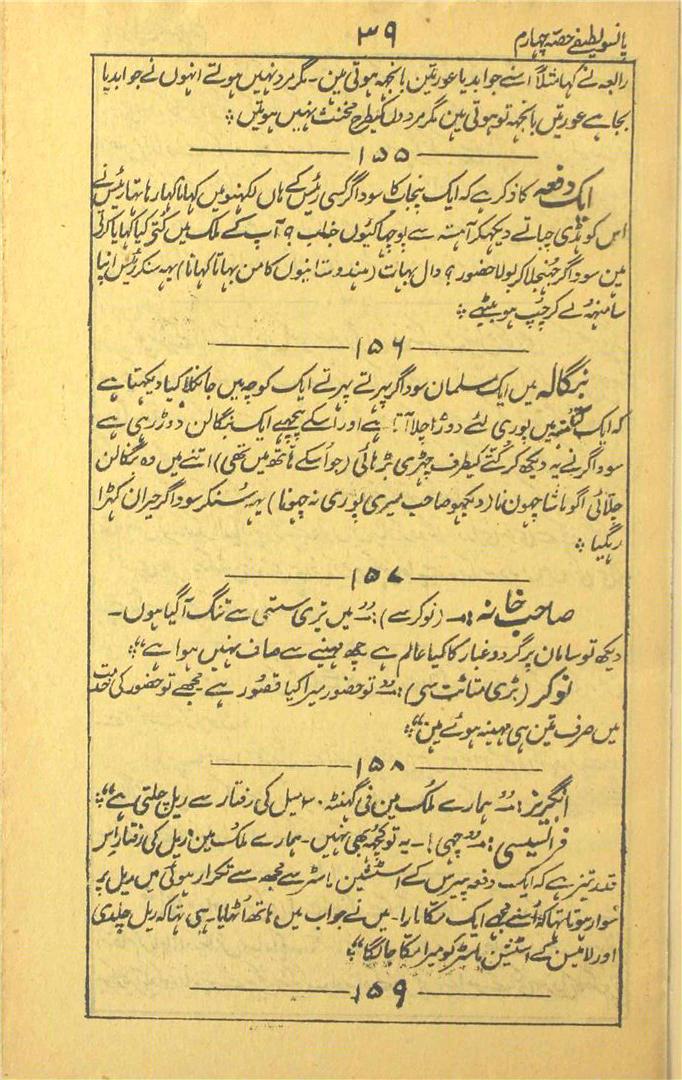 پانسو لطیفے حصہ چہارم
۳۹
رابعہ نے کہا مثلاً اسنے جوابدیا عورتین بانجھہ ہوتی ہین۔ مگر مرد نہیں ہوتے انہوں نے جوابدیا
بجا ہے عورتیں بانجھہ تو ہوتی ہین مگر مردوں کیطرح مخنث نہیں ہوتیں ؞
۱۵۵
ایک دفعہ کا ذکر ہے کہ ایک پنجاب کا سوداگر کسی رئیس کے ہاں لکھنو میں کہانا کہا رہا تہا رئیس نے
اس کو ہڈی چباتے دیکہکر آہستہ سے پوچہا کیوں جناب ؟ آپ کے ملک میں کتی کیا کہایا کرتی
ہین سوداگر جھنجلا کر بولا حضور ؟ دال بہات (ہندوستانیوں کا من بہاتا کہانا) یہہ سنکر رئیس اپنا
سا منہہ لے کر چپ ہو بیٹھے ؞
۱۵۶
بنگالہ میں ایک مسلمان سوداگر پہرتے پہرتے ایک کوچہ میں جا نکلا کیا دیکہتا ہے
کہ ایک کتا منہ میں پوری لئے دوڑا چلا آتا ہے اور اسکے پیچھے ایک بنگالن دوڑ رہی ہے
سوداگر نے یہ دیکھ کر کتے کیطرف چہڑی بڑہائی (جو اسکے ہاتھ میں تھی) اتنے میں وہ بنگالن
چلائی اگو باشا چہون نا (دیکہو صاحب میری پوری نہ چہونا) یہہ سنکر سوداگر حیران کہڑا
رہگیا ؞
۱۵۷
صاحب خانہ :۔ (نوکر سے) :۔ ”میں تری سستی سے تنگ آگیا ہوں۔
دیکھ تو سامان پر گرد و غبار کا کیا عالم ہے چھ مہینے سے صاف نہیں ہوا ہے“ ؞
نوکر (بڑی متانت سی) :۔ ”تو حضور میرا کیا قصور ہے مجھے تو حضور کی خدمت
میں صرف تین ہی مہینہ ہوئے ہین“ ؞
۱۵۸
انگریز :۔ ”ہمارے ملک مین فی گھنٹہ ۶۰ میل کی رفتار سے ریل چلتی ہے“ ؞
فرانسیسی :۔ ”چہی !۔ یہ تو کچھہ بھی نہیں۔ ہمارے ملک مین ریل کی رفتار اس
قدر تیز ہے کہ ایک دفعہ پیرس کے اسٹیشن ماسٹر سے مجھ سے تکرار ہوئی میں ریل پر
سوار ہوتا تہا کہ اسنے مجھے ایک مکا مارا۔ میں نے جواب میں ہاتھ اٹھایا ہی تہا کہ ریل چلدی
اور کے اسٹیشن ماسٹر کو میرا مکا جا لگا“ ؞
۱۵۹